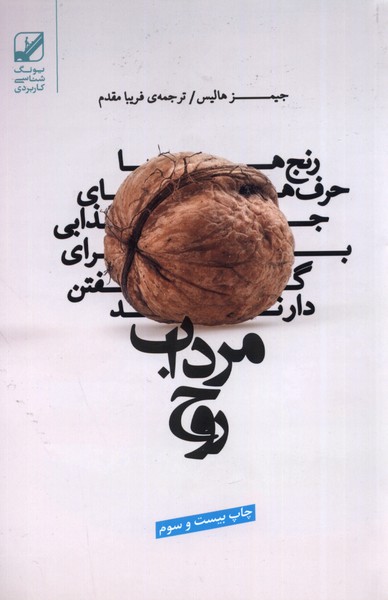 یونگ
شناسی
کاربردی
جیمز هالیس / ترجمه‌ی فریبا مقدم
رنج‌ها
حرف‌های
جذابی
برای
گفتن
دارند
مرداب
روح
چاپ بیست و سوم